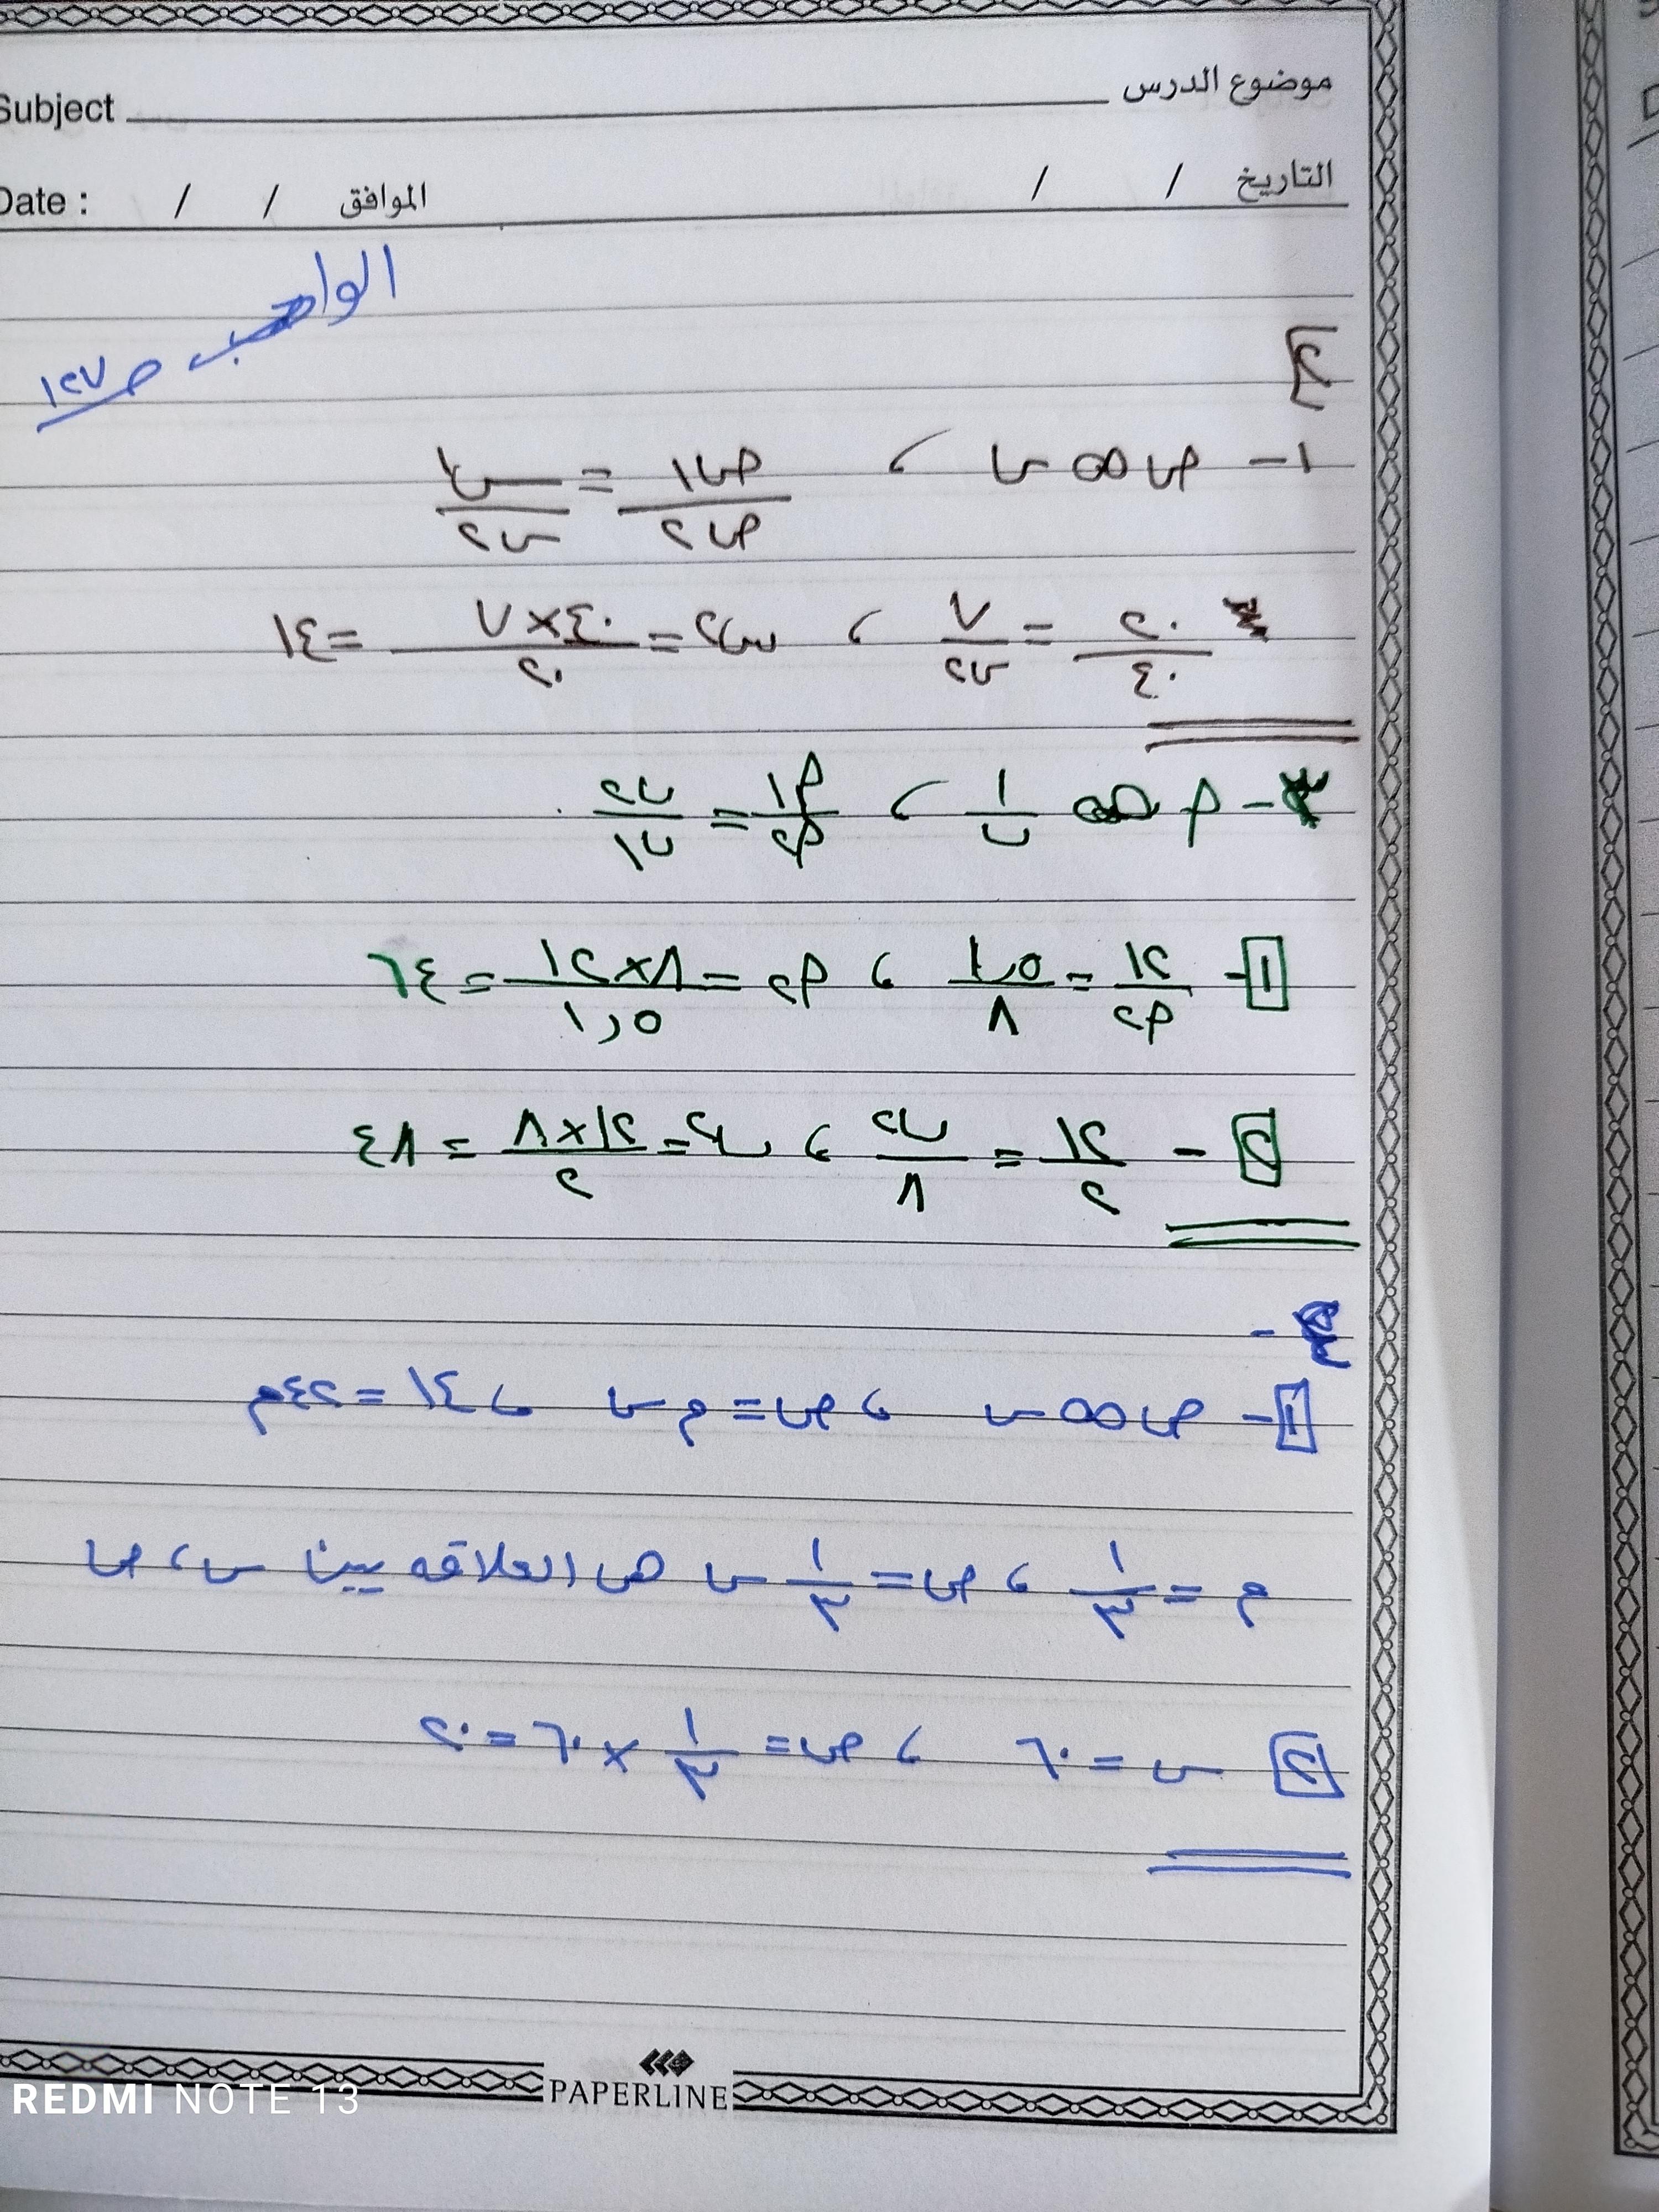 موضوع الدرس Subject
التاريخ / / الموافق / / Date :
الواجب ص ١٢٧
١- ص ∝ س ، ص١/ص٢ = س١/س٢
٢٠/٤٠ = ٧/س٢ ، س٢ = ٤٠×٧/٢٠ = ١٤
- م ∝ ١/ب ، م١/م٢ = ب٢/ب١
١- ١٢/م٢ = ١,٥/٨ ، م٢ = ٨×١٢/١,٥ = ٦٤
٢- ١٢/٢ = ب٢/٨ ، ب٢ = ١٢×٨/٢ = ٤٨
-
١- ص ∝ س ، ص = م س ، ١٤ = ٤٢م
م = ١/٣ ، ص = ١/٣ س هى العلاقه بين س ، ص
٢ س = ٦٠ ، ص = ١/٣ × ٦٠ = ٢٠
PAPERLINE
REDMI NOTE 13